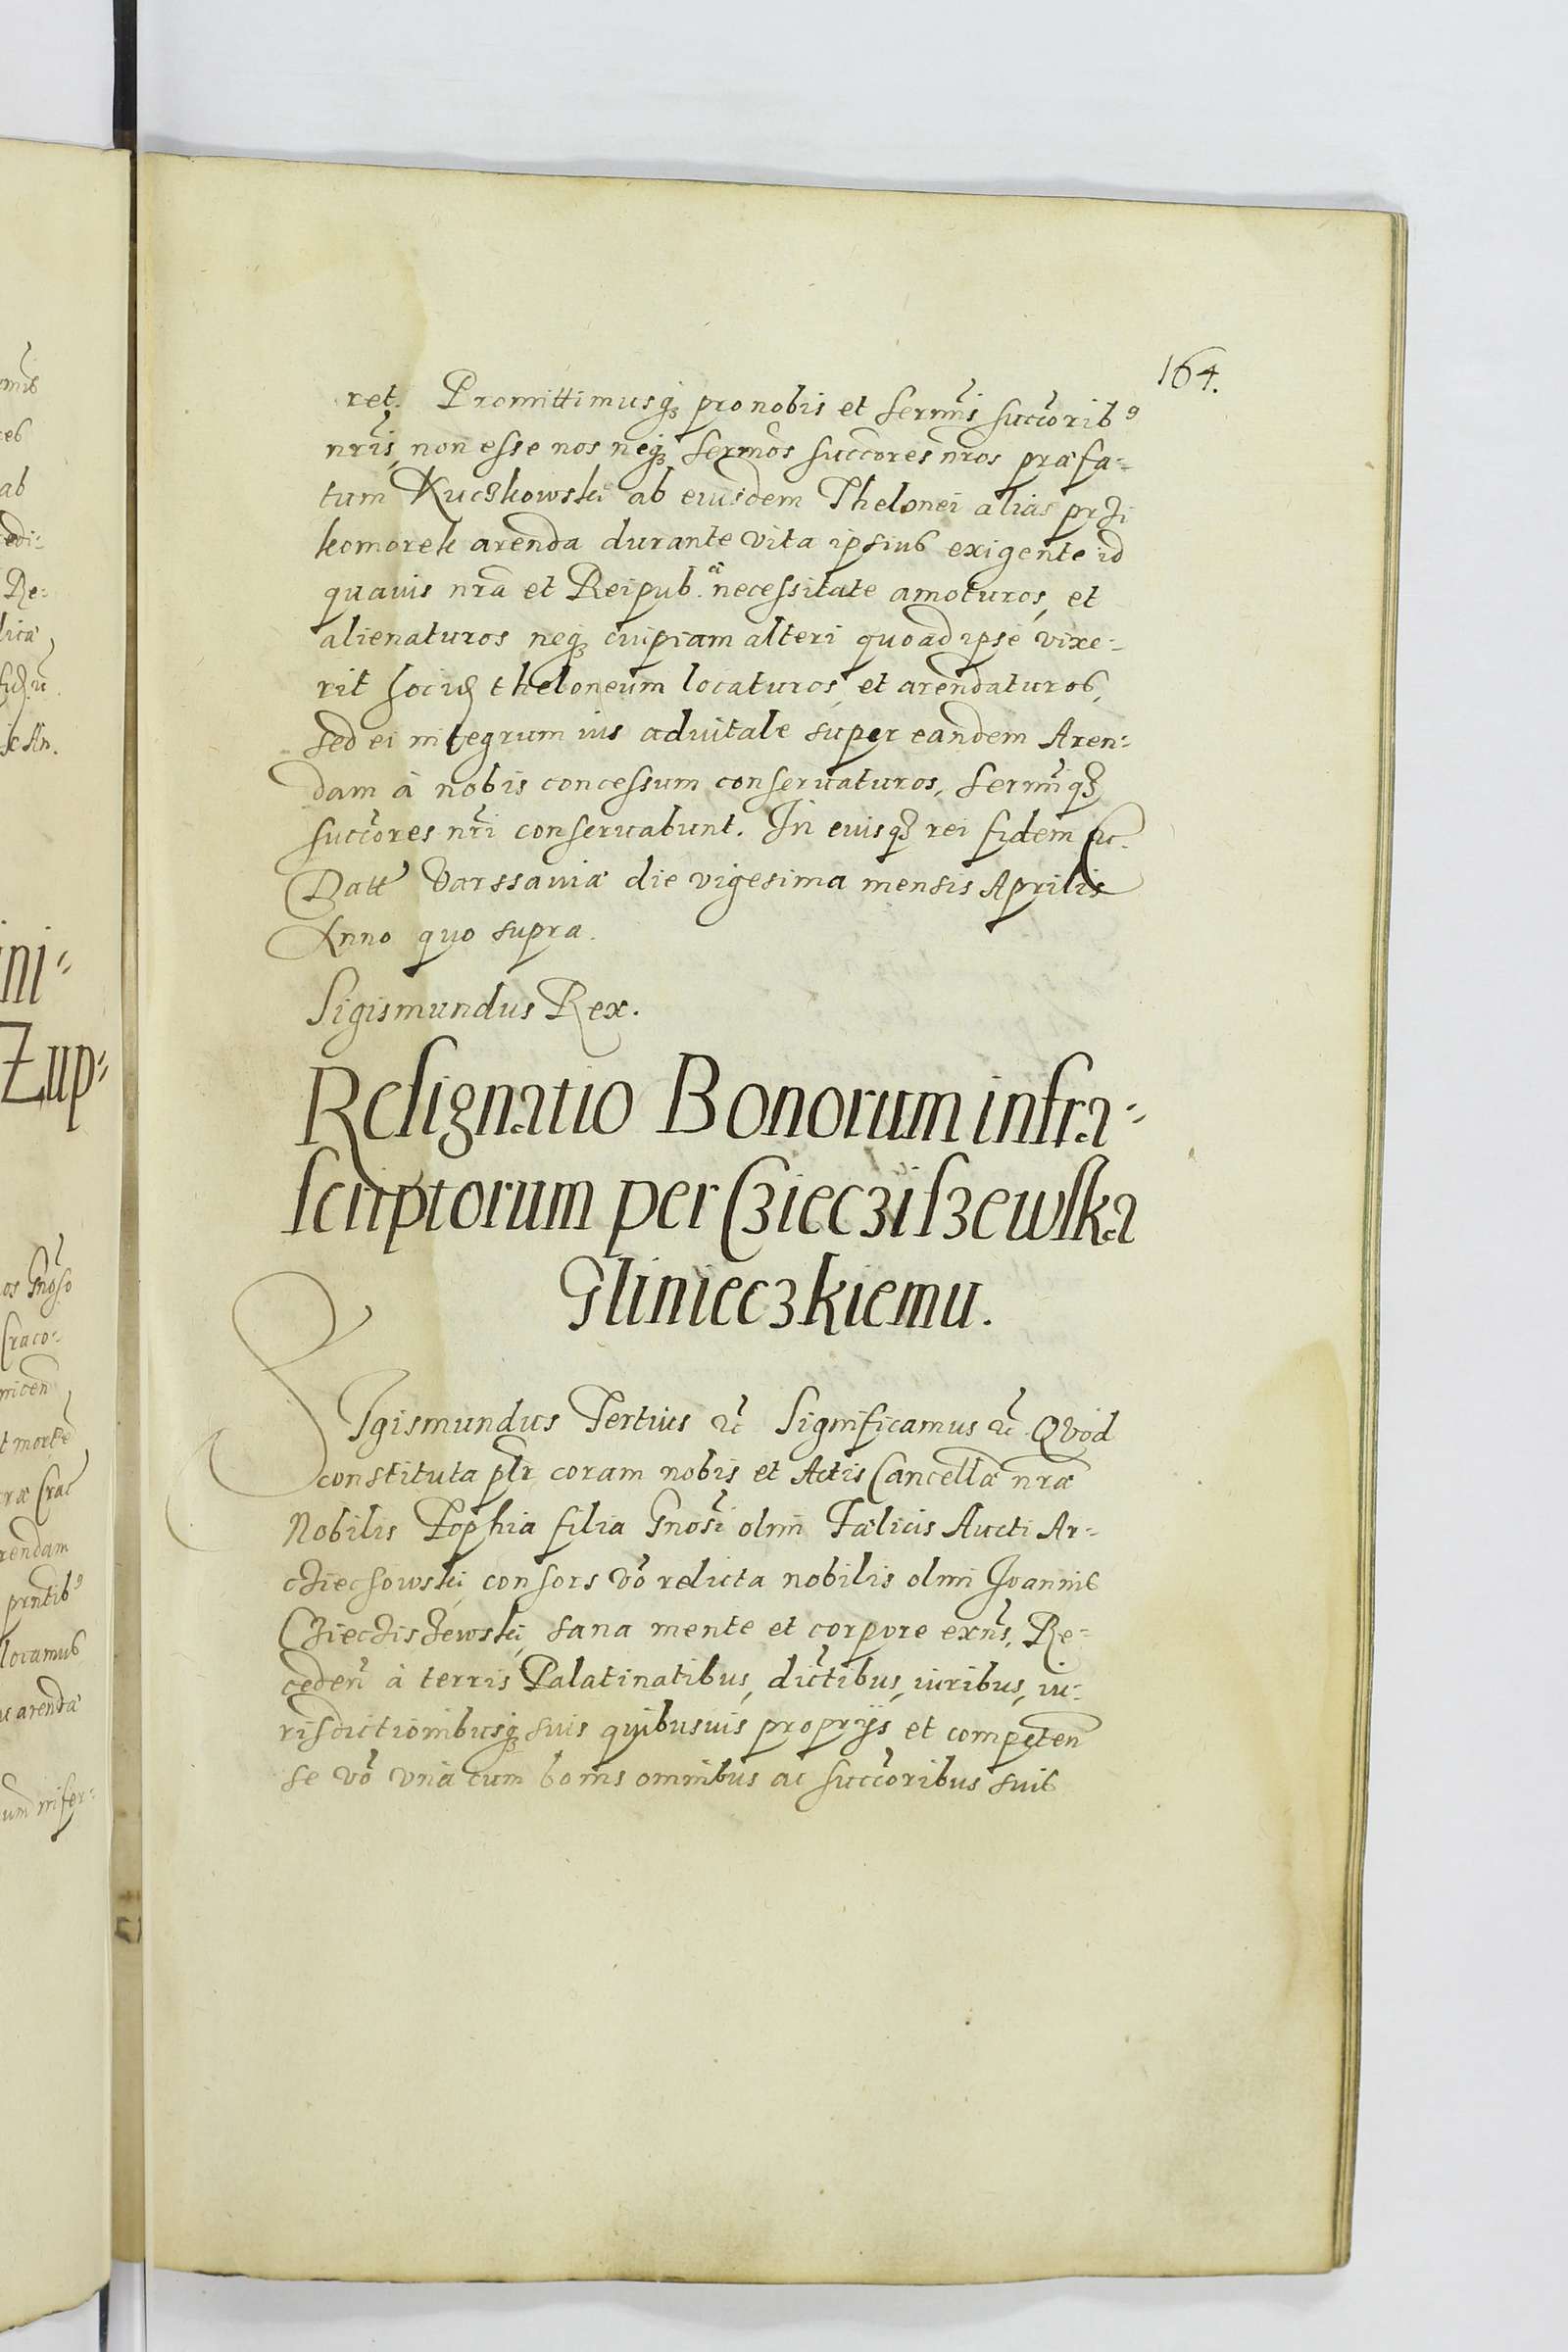 164.
ret. Promittimusq3 pro nobis et Sermis succorib9
nris, non esse nos neq3 Sermos succores nros præfa-
tum Kuczkowski ab eiusdem Thelonei alias przi
komorek arenda durante vita ipsius exigente id
quauis nra et Reipub. necessitate amoturos, et
alienaturos neq3 cuipiam alteri quoad ipse vixe-
rit hoc theloneum locaturos et arendaturos,
Sed ei integrum ius aduitale super eandem Aren-
dam à nobis concessum conseruaturos, Sermiq3
succores nri conseruabunt. In cuiusq3 rei fidem etc.
Datt Varssauiæ die vigesima mensis Aprilis
Anno quo supra.
Sigismundus Rex.
Resignatio Bonorum infra-
scriptorum per Czieczisżewska
Glinieczkiemu.
SIgismundus Tertius etc Significamus etc Quod
constituta plr coram nobis et Actis Cancellæ nræ
Nobilis Zophia filia Gnosi olim Fælicis Aucti Ar-
cziechowski, consors vo relicta nobilis olim Joannis
Cziecziszewski, sana mente et corpore exns, Re-
ceden à terris Palatinatibus, dictibus, iuribus, iu-
risdictionibusq3 suis quibusuis proprijs et competen
se vo vnà cum bonis omnibus ac succoribus suis
omis
ces
ab
edi-
Re-
lica
ic An.
ini-
Zup-
os Gnoso
Craco-
micen
t morte
ræ Crac
rendam
prntib9
locamus
uc arenda
um infer-